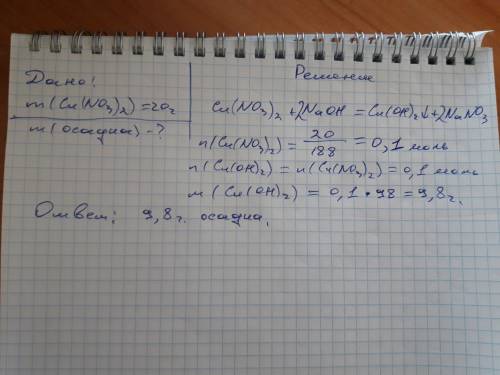 Дано:
m(Cu(NO₃)₂)=20г
m(осадка)-?
Решение
Cu(NO₃)₂+2NaOH=Cu(OH)₂↓+2NaNO₃
n(Cu(NO₃)₂)=20/188=0,1 моль
n(Cu(OH)₂)=n(Cu(NO₃)₂)=0,1 моль
m(Cu(OH)₂)=0,1•98=9,8г.
Ответ: 9,8г. осадка.